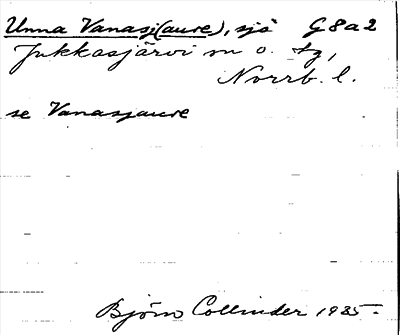 Unna Vanasj(aure), sjö G8a2
Jukkasjärvi sn o. tg,
Norrb. l.
se Vanasjaure
Björn Collinder 1935